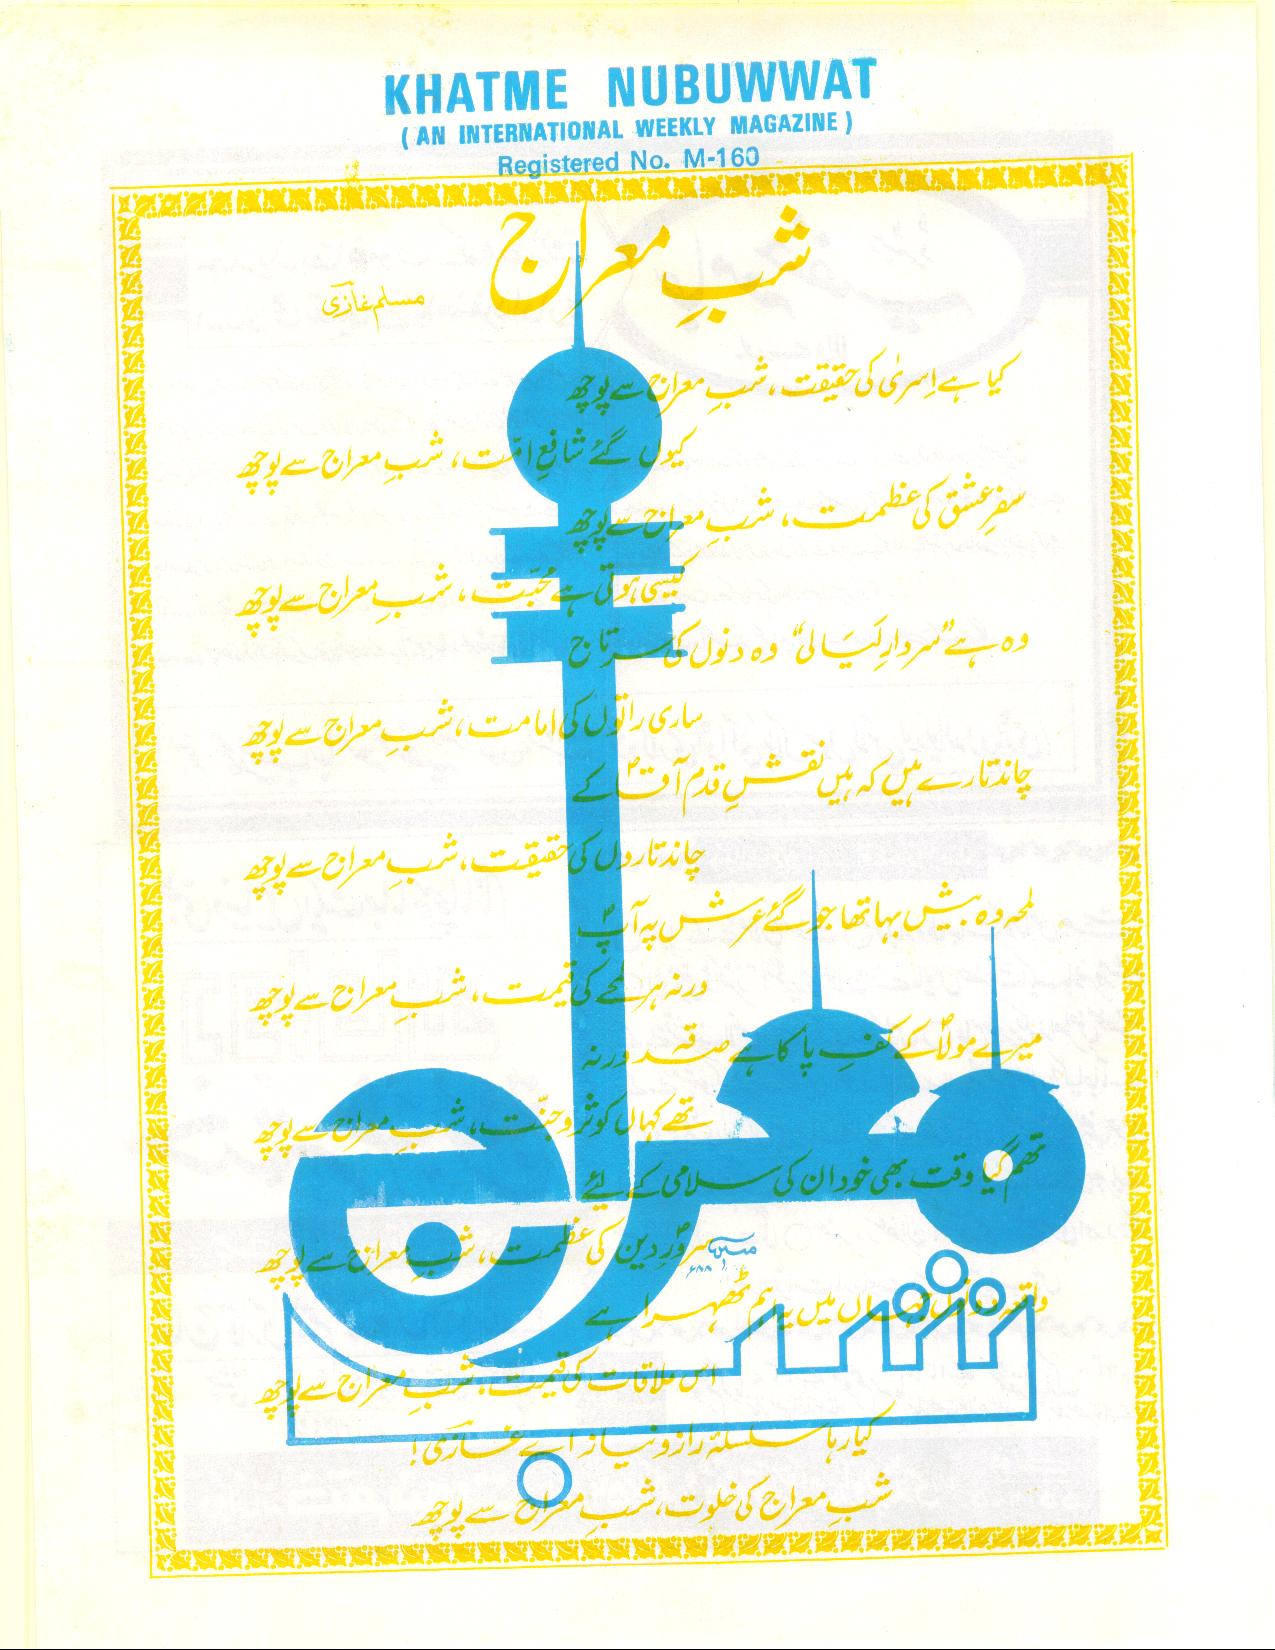 KHATME NUBUWWAT
( AN INTERNATIONAL WEEKLY MAGAZINE )
Registered No. M-160
شبِ معراج
مسلم غازی
کیا ہے اِسریٰ کی حقیقت، شبِ معراج سے پوچھ
کیوں گئے شافعِ امّت، شبِ معراج سے پوچھ
سفرِ عشق کی عظمت، شبِ معراج سے پوچھ
کیسی ہوتی ہے محبّت، شبِ معراج سے پوچھ
وہ ہے ”سردارِ لَیَالی“ وہ دنوں کی سرتاج
ساری راتوں کی امامت، شبِ معراج سے پوچھ
چاند تارے ہیں کہ ہیں نقشِ قدم آقاؐ کے
چاند تاروں کی حقیقت، شبِ معراج سے پوچھ
لمحہ وہ بیش بہا تھا جو گئے عرش پہ آپؐ
ورنہ ہر لمحے کی قیمت، شبِ معراج سے پوچھ
میرے مولاؐ کے کفِ پا کا ہے صدقہ ورنہ
تھے کہاں کوثر و جنّت، شبِ معراج سے پوچھ
تھم گیا وقت بھی خود ان کی سلامی کے لئے
سرورِؐ دین کی عظمت، شبِ معراج سے پوچھ
واقعہ دونوں جہاں میں یہ اہم ٹھہرا ہے
اس ملاقات کی قیمت، شبِ معراج سے پوچھ
کیا رہا سلسلۂ راز و نیاز اے غازی!
شبِ معراج کی خلوت، شبِ معراج سے پوچھ
شب معراج